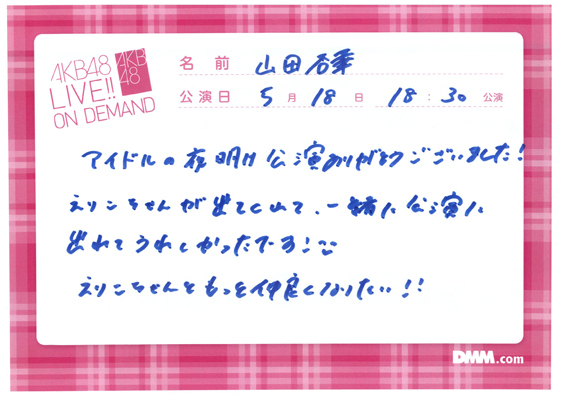 AKB48
LIVE!!
ON DEMAND
AKB
48
名前 山田杏華
公演日 5月18日 18:30公演
アイドルの夜明け公演ありがとうございました!
えりこちゃんが出てくれて、一緒に公演に
出れてうれしかったです!
えりこちゃんともっと仲良くなりたい!!
DMM.com